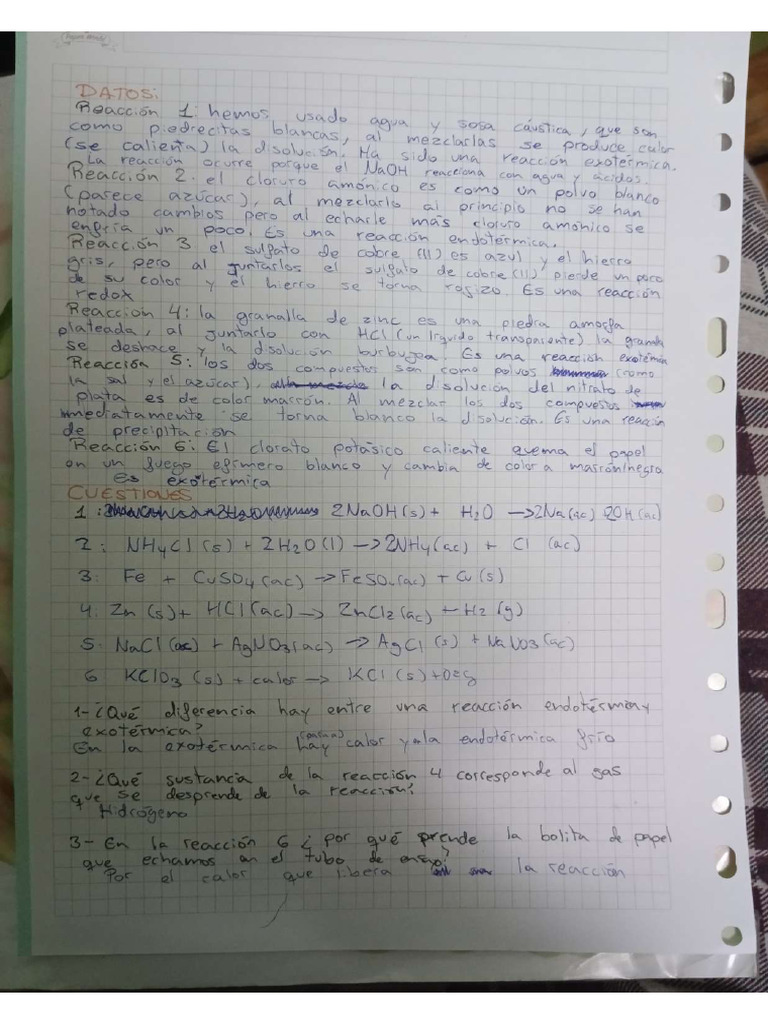 DATOS:
Reacción 1: hemos usado agua y sosa cáustica, que son
como piedrecitas blancas, al mezclarlas se produce calor
(se calienta) la disolución. Ha sido una reacción exotérmica.
La reacción ocurre porque el NaOH reacciona con agua y ácidos.
Reacción 2: el cloruro amónico es como un polvo blanco
(parece azúcar), al mezclarlo al principio no se han
notado cambios pero al echarle más cloruro amónico se
enfria un poco. Es una reacción endotérmica.
Reacción 3 el sulfato de cobre (II) es azul y el hierro
gris, pero al juntarlos el sulfato de cobre (II) pierde un poco
de su color y el hierro se torna rojizo. Es una reacción
redox
Reacción 4: la granalla de zinc es una piedra amorfa
plateada, al juntarlo con HCl (un líquido transparente) la granalla
se deshace y la disolución burbujea. Es una reacción exotérmica
Reacción 5: los dos compuestos son como polvos (como
la sal y el azúcar), la disolución del nitrato de
plata es de color marrón. Al mezclar los dos compuestos
inmediatamente se torna blanco la disolución. Es una reacción
de precipitación
Reacción 6: El clorato potásico caliente quema el papel
en un fuego efímero blanco y cambia de color a marrón/negro
Es exotérmica
CUESTIONES
1: 2NaOH(s) + H2O → 2Na(ac) 2OH(ac)
2: NH4Cl(s) + 2H2O(l) → 2NH4(ac) + Cl (ac)
3: Fe + CuSO4(ac) → FeSO4(ac) + Cu(s)
4. Zn(s) + HCl(ac) → ZnCl2(ac) + H2(g)
5. NaCl(ac) + AgNO3(ac) → AgCl(s) + NaNO3(ac)
6 KClO3(s) + calor → KCl(s) + O2g
1- ¿Qué diferencia hay entre una reacción endotérmica y
exotérmica?
En la exotérmica hay calor y la endotérmica frío
2- ¿Qué sustancia de la reacción 4 corresponde al gas
que se desprende de la reacción?
Hidrógeno
3- En la reacción 6 ¿por qué prende la bolita de papel
que echamos en el tubo de ensayo?
Por el calor que libera la reacción